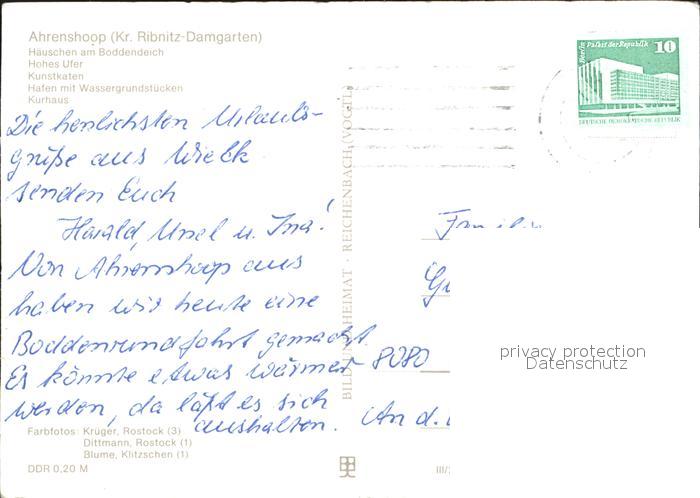 Ahrenshoop (Kr. Ribnitz-Damgarten)
Häuschen am Boddendeich
Hohes Ufer
Kunstkaten
Hafen mit Wassergrundstücken
Kurhaus
Die herrlichsten Urlaubs-
grüße aus Wieck
senden Euch
Harald, Ursel u. Ina!
Von Ahrenshoop aus
haben wir heute eine
Boddenrundfahrt gemacht.
Es könnte etwas wärmer
werden, da läßt es sich
aushalten.
Farbfotos: Krüger, Rostock (3)
Dittmann, Rostock (1)
Blume, Klitzschen (1)
DDR 0,20 M
BILD UND HEIMAT · REICHENBACH (VOGTL
III/
Berlin Palast der Republik
10
DEUTSCHE DEMOKRATISCHE REPUBLIK
Familie
8080
An d.
privacy protection
Datenschutz